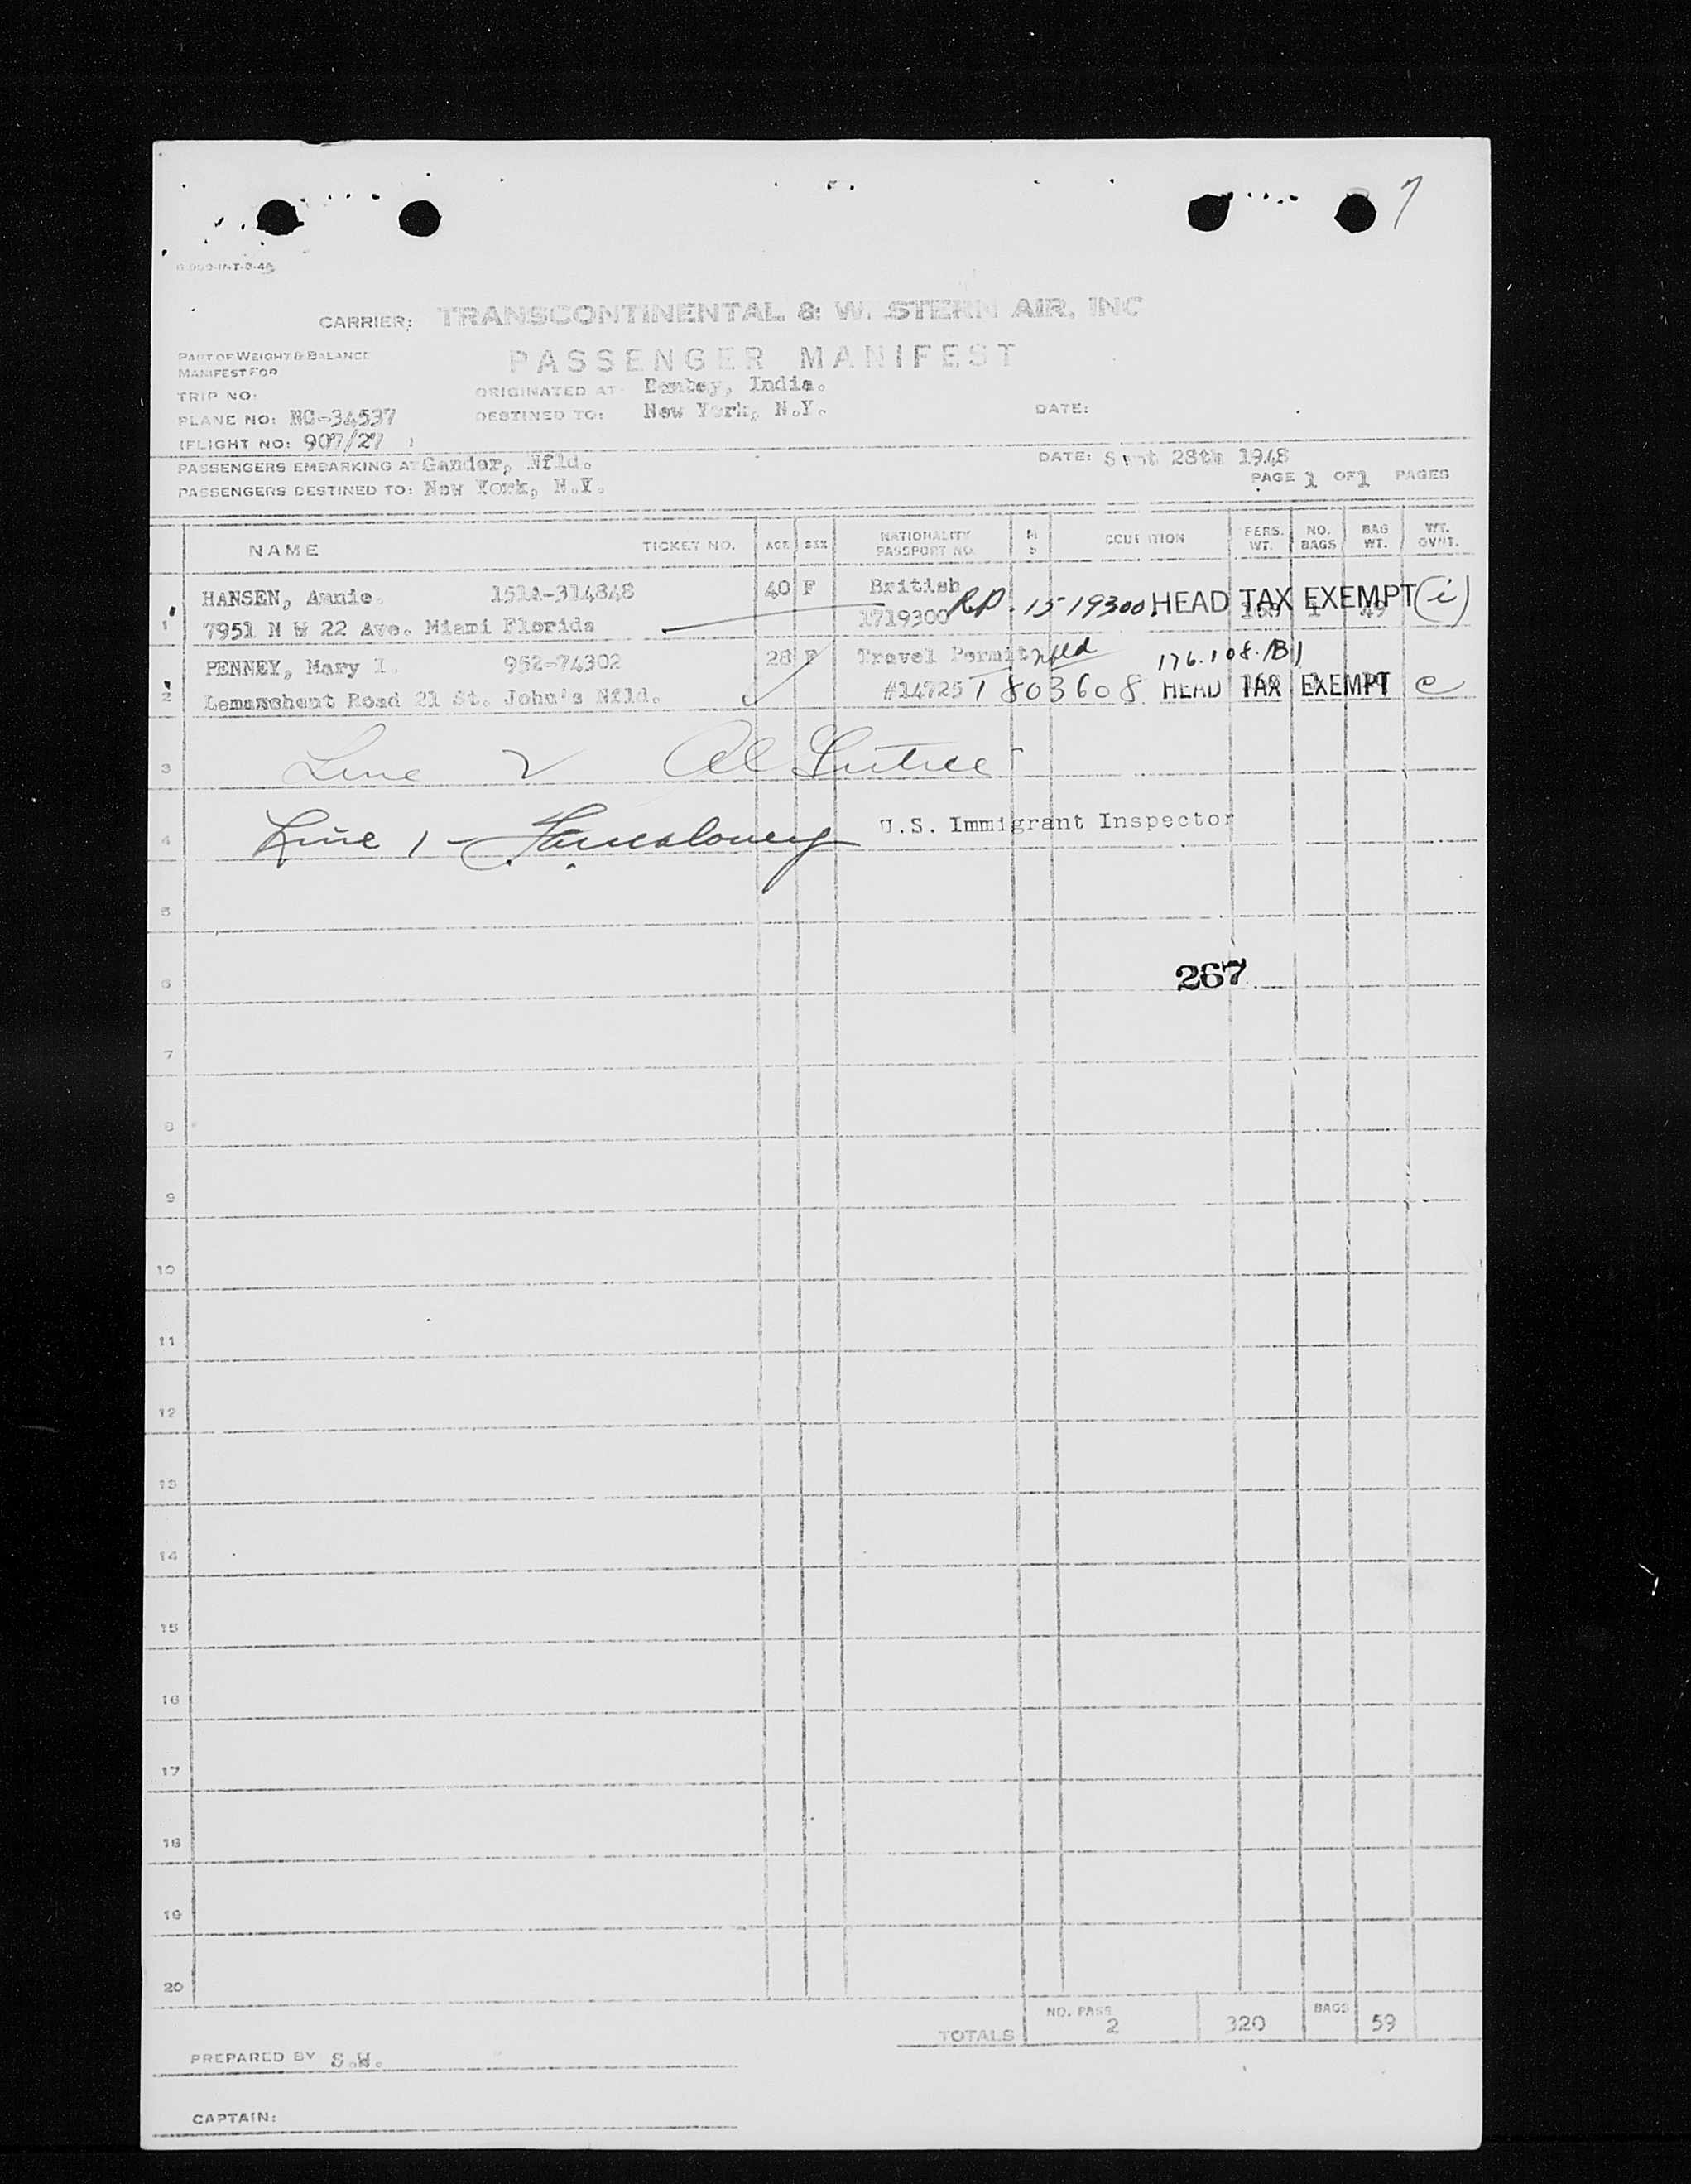 7
CARRIER: TRANSCONTINENTAL & W. STERN AIR, INC
PART OF WEIGHT & BALANCE
MANIFEST FOR
PASSENGER MANIFEST
TRIP NO:
ORIGINATED AT: Bombay, India.
PLANE NO: NC-34537
DESTINED TO: New York, N.Y.
DATE:
(FLIGHT NO: 907/27 )
PASSENGERS EMBARKING AT Gander, Nfld.
DATE: Sept 28th 1948
PASSENGERS DESTINED TO: New York, N.Y.
PAGE 1 OF 1 PAGES
NAME TICKET NO. AGE SEX NATIONALITY PASSPORT NO. M S CCUPATION PERS. WT. NO. BAGS BAG WT. WT. OVNT.
HANSEN, Annie. 151A-314848 40 F British
1 7951 N W 22 Ave. Miami Florida 1719300 RP. 1519300 HEAD TAX EXEMPT (i)
PENNEY, Mary I. 952-74302 28 F Travel Permit Nfld 176.108.(B)
2 Lemarchent Road 21 St. John's Nfld. #14725 T 803608 HEAD TAX EXEMPT e
3 Line 2
4 Line 1 - U.S. Immigrant Inspector
5
267
6
7
8
9
10
11
12
13
14
15
16
17
18
19
20
TOTALS NO. PASS 2 320 BAGS 59
PREPARED BY S.W.
CAPTAIN: